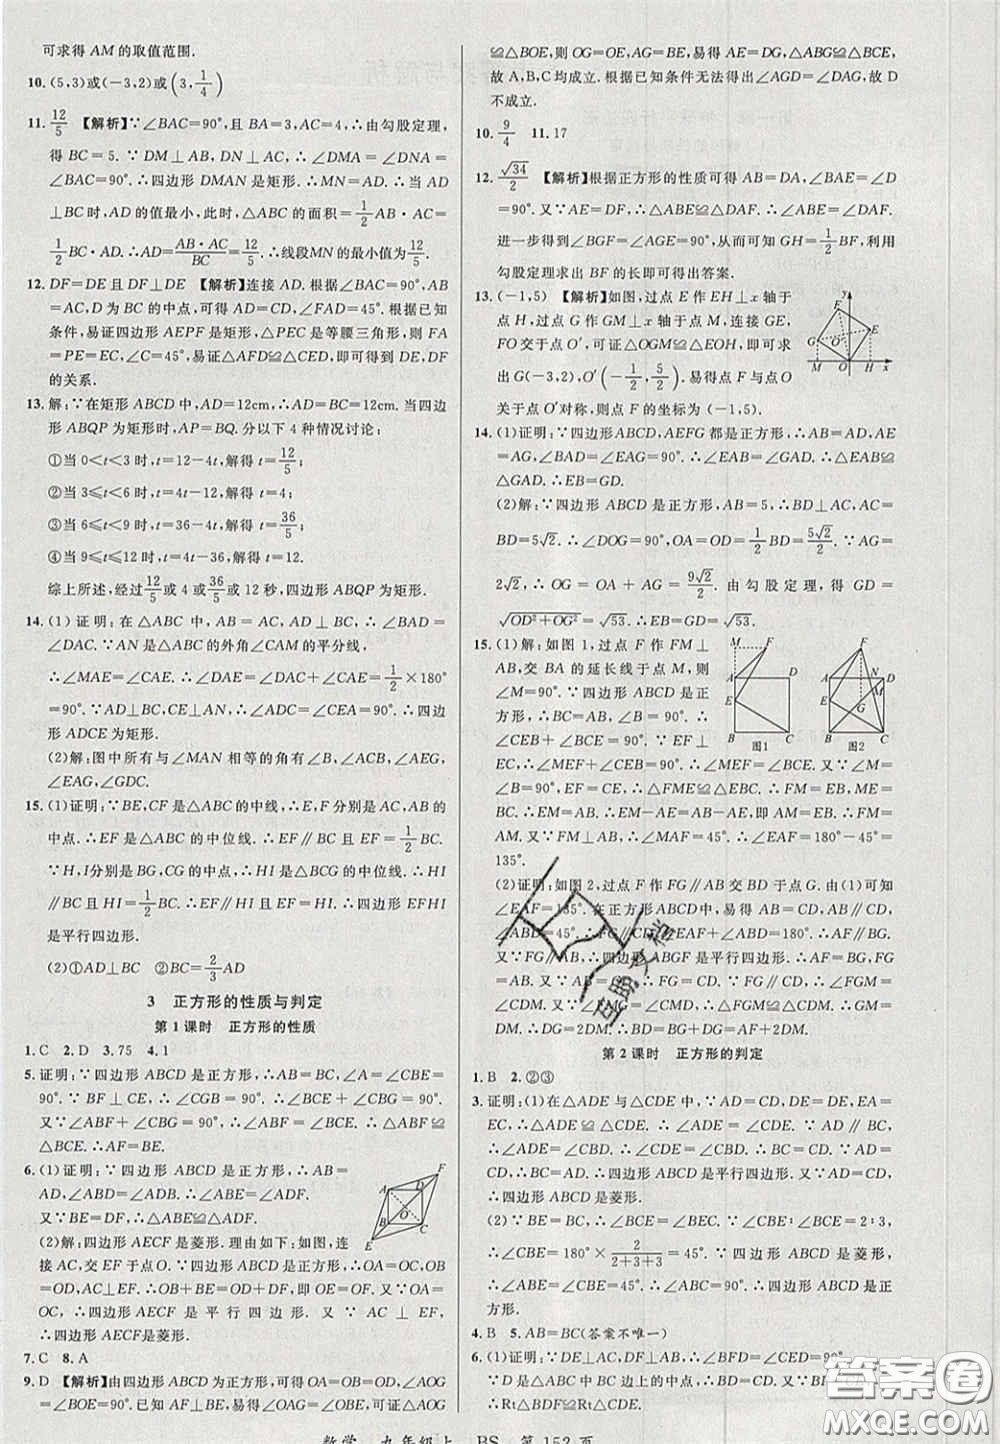 可求得 AM 的取值范围.
10. (5,3)或(-3,2)或(3,1/4)
11. 12/5 【解析】∵∠BAC=90°,且 BA=3,AC=4,∴由勾股定理,
得 BC=5. ∵DM⊥AB,DN⊥AC,∴∠DMA=∠DNA=
∠BAC=90°.∴四边形 DMAN 是矩形.∴MN=AD.∴当 AD
⊥BC 时,AD 的值最小,此时,△ABC 的面积=1/2 AB·AC=
1/2 BC·AD.∴AD=AB·AC/BC=12/5.∴线段MN的最小值为12/5.
12. DF=DE 且 DF⊥DE 【解析】连接 AD.根据∠BAC=90°,AB=
AC,D 为 BC 的中点,可得 AD=CD,∠FAD=45°.根据已知
条件,易证四边形 AEPF 是矩形,△PEC 是等腰三角形,则 FA
=PE=EC,∠C=45°,易证△AFD≌△CED,即可得 DE,DF
的关系.
13. 解:∵在矩形 ABCD 中,AD=12cm,∴AD=BC=12cm.当四边
形 ABQP 为矩形时,AP=BQ.分以下 4 种情况讨论:
①当 0<t<3 时,t=12-4t,解得 t=12/5;
②当 3≤t<6 时,t=4t-12,解得 t=4;
③当 6≤t<9 时,t=36-4t,解得 t=36/5;
④当 9≤t≤12 时,t=4t-36,解得 t=12.
综上所述,经过12/5或 4 或36/5或 12s 时,四边形 ABQP 为矩形.
14. (1)证明:在△ABC 中,AB=AC,AD⊥BC,∴∠BAD=
∠DAC.∵AN 是△ABC 的外角∠CAM 的平分线,
∴∠MAE=∠CAE.∴∠DAE=∠DAC+∠CAE=1/2×180°
=90°.又∵AD⊥BC,CE⊥AN,∴∠ADC=∠CEA=90°.∴四边
形 ADCE 为矩形.
(2)解:图中所有与∠MAN 相等的角有∠B,∠ACB,∠AEG,
∠EAG,∠GDC.
15. (1)证明:∵BE,CF 是△ABC 的中线,∴E,F分别是 AC,AB 的
中点.∴EF 是△ABC 的中位线.∴EF∥BC 且 EF=1/2BC.
∵H,I分别是 BG,CG 的中点,∴HI 是△GBC 的中位线.∴HI
∥BC 且 HI=1/2BC.∴EF∥HI 且 EF=HI.∴四边形 EFHI
是平行四边形.
(2)①AD⊥BC ②BC=2/3AD
3 正方形的性质与判定
第 1 课时 正方形的性质
1. C 2. D 3. 75 4. 1
5. 证明:∵四边形 ABCD 是正方形,∴AB=BC,∠A=∠CBE=
90°. ∵BF⊥CE,∴∠CGB=90°. ∴∠GCB+∠CBG=
90°.又∵∠CBG+∠FBA=90°,∴∠GCB=∠FBA.∴△ABF
≌△BCE.∴AF=BE.
6. (1)证明:∵四边形 ABCD 是正方形,∴AB=
AD.∴∠ABD=∠ADB.∴∠ABE=∠ADF.
又∵BE=DF,∴△ABE≌△ADF.
(2)解:四边形 AECF 是菱形.理由如下:如图,连
接 AC,交 EF 于点 O.∵四边形 ABCD 是正方形,∴OA=OC,OB
=OD,AC⊥EF.∴OB+BE=OD+DF,即 OE=OF.又∵OA=
OC,∴四边形 AECF 是平行四边形.又∵AC⊥EF,
∴四边形 AECF是菱形.
7. C 8. A
9. D 【解析】由四边形 ABCD 是正方形,可得OA=OB=OD,∠AOG
=∠BOE=90°.已知 AG=BE,易得∠OAG=∠OBE,则△AOG
≌△BOE,则 OG=OE,则△AOF≌△DOE,易得 AF=DE.
故 A,B,C 均成立.根据已知条件无法得出∠AGD=∠AFD,故 D
不成立.
10. 9/4 11. 17
12. √34/2 【解析】根据正方形的性质可得 AB=DA,∠BAE=∠D
=90°.又∵AE=DF,∴△ABE≌△DAF.∴∠ABE=∠DAF.
进一步可得∠BGF=∠AGE=90°,从而可知 GH=1/2BF,利用
勾股定理求出 BF 的长即可得出答案.
13. (-1,5) 【解析】如图,过点 E 作EH⊥x 轴于
点 H,过点 G 作 GM⊥x 轴于点 M,连接 GE,
FO 交于点 O′,可证△OGM≌△EOH,即可求
出 G(-3,2),O′(-1/2,5/2).易得点 F 与点 O
关于点 O′对称,则点 F 的坐标为(-1,5).
14. (1)证明:∵四边形ABCD,AEFG 都是正方形,∴AB=AD,AE
=AG,∠BAD=∠EAG=90°.∴∠BAE=∠GAD.∴△BAE≌
△DAG.∴EB=GD.
(2)解:∵四边形 ABCD 是正方形,AB=5,∴BD⊥AC,
BD=5√2.∴∠DOG=90°,OA=OD=1/2BD=5√2/2.∵AG=
2√2,∴OG=OA+AG=9√2/2.由勾股定理,得 GD=
√OD²+OG²=√53.∴EB=√53.
15. (1)解:如图 1,过点 F 作 FM⊥
AB,交 BA 的延长线于点 M,则
∠M=90°.∵四边形 ABCD 是正方
形,∴BC=AB,∠B=90°=∠M.
∴∠CEB+∠BCE=90°.∵EF⊥
CE,∴∠CEB+∠FEM=90°.
∴∠BCE=∠FEM.又∵CE=EF,∴△BCE≌△MEF.∴BE=FM,
BC=EM.∴EM=AB.∴EM-AE=AB-AE,即 AM=BE.∴FM=
AM.又∵FM⊥AB,∴∠MAF=45°.∴∠EAF=180°-45°=
135°.
(2)证明:如图 2,过点 F 作 FG∥AB 交 BD 于点 G.由(1)可知
∠EAF=135°.在正方形ABCD 中,∵AB∥CD,AB=CD,
∠ABD=45°,∴∠EAF+∠ABD=180°.∴AF∥BD.
又∵FG∥AB,∴四边形 ABGF 是平行四边形.∴AF=BG,
FG=AB=CD.∴FG∥CD.∴∠FGM=∠CDM.
又∵∠FMG=∠CMD,∴△FGM≌△CDM.∴GM=
DM.∴DG=2DM.∴BD=BG+DG=AF+2DM.
第 2 课时 正方形的判定
1. B 2. ②③
3. 证明:(1)在△ADE 与△CDE 中,∵AD=CD,DE=DE,EA=
EC,∴△ADE≌△CDE.∴∠ADE=∠CDE.∵AD∥BC,
∴∠ADE=∠CBD.∴∠CDE=∠CBD.∴BC=CD.∵AD=
CD,∴BC=AD.∴四边形 ABCD 是平行四边形.∵AD=CD,
∴四边形 ABCD 是菱形.
(2)∵BE=BC,∴∠BCE=∠BEC.∵∠CBE∶∠BCE=2∶3,
∴∠CBE=180°×2/(2+3+3)=45°.∵四边形 ABCD 是菱形,
∴∠ABE=∠CBE=45°.∴∠ABC=90°.∴四边形ABCD是正
方形.
4. B 5. AB=BC(答案不唯一)
6. (1)证明:∵DE⊥AC,DF⊥AB,∴∠BFD=∠CED=90°.
又∵BD=CD,BF=CE,
∴Rt△BDF≌Rt△CDE.
M F A D E B C 图1
A F N D E M G B C 图2
y F E G O′ M O H x
A D F O B C E
互助文档
答案圈
MXQE.COM
数学 九年级上 BS 第 152 页